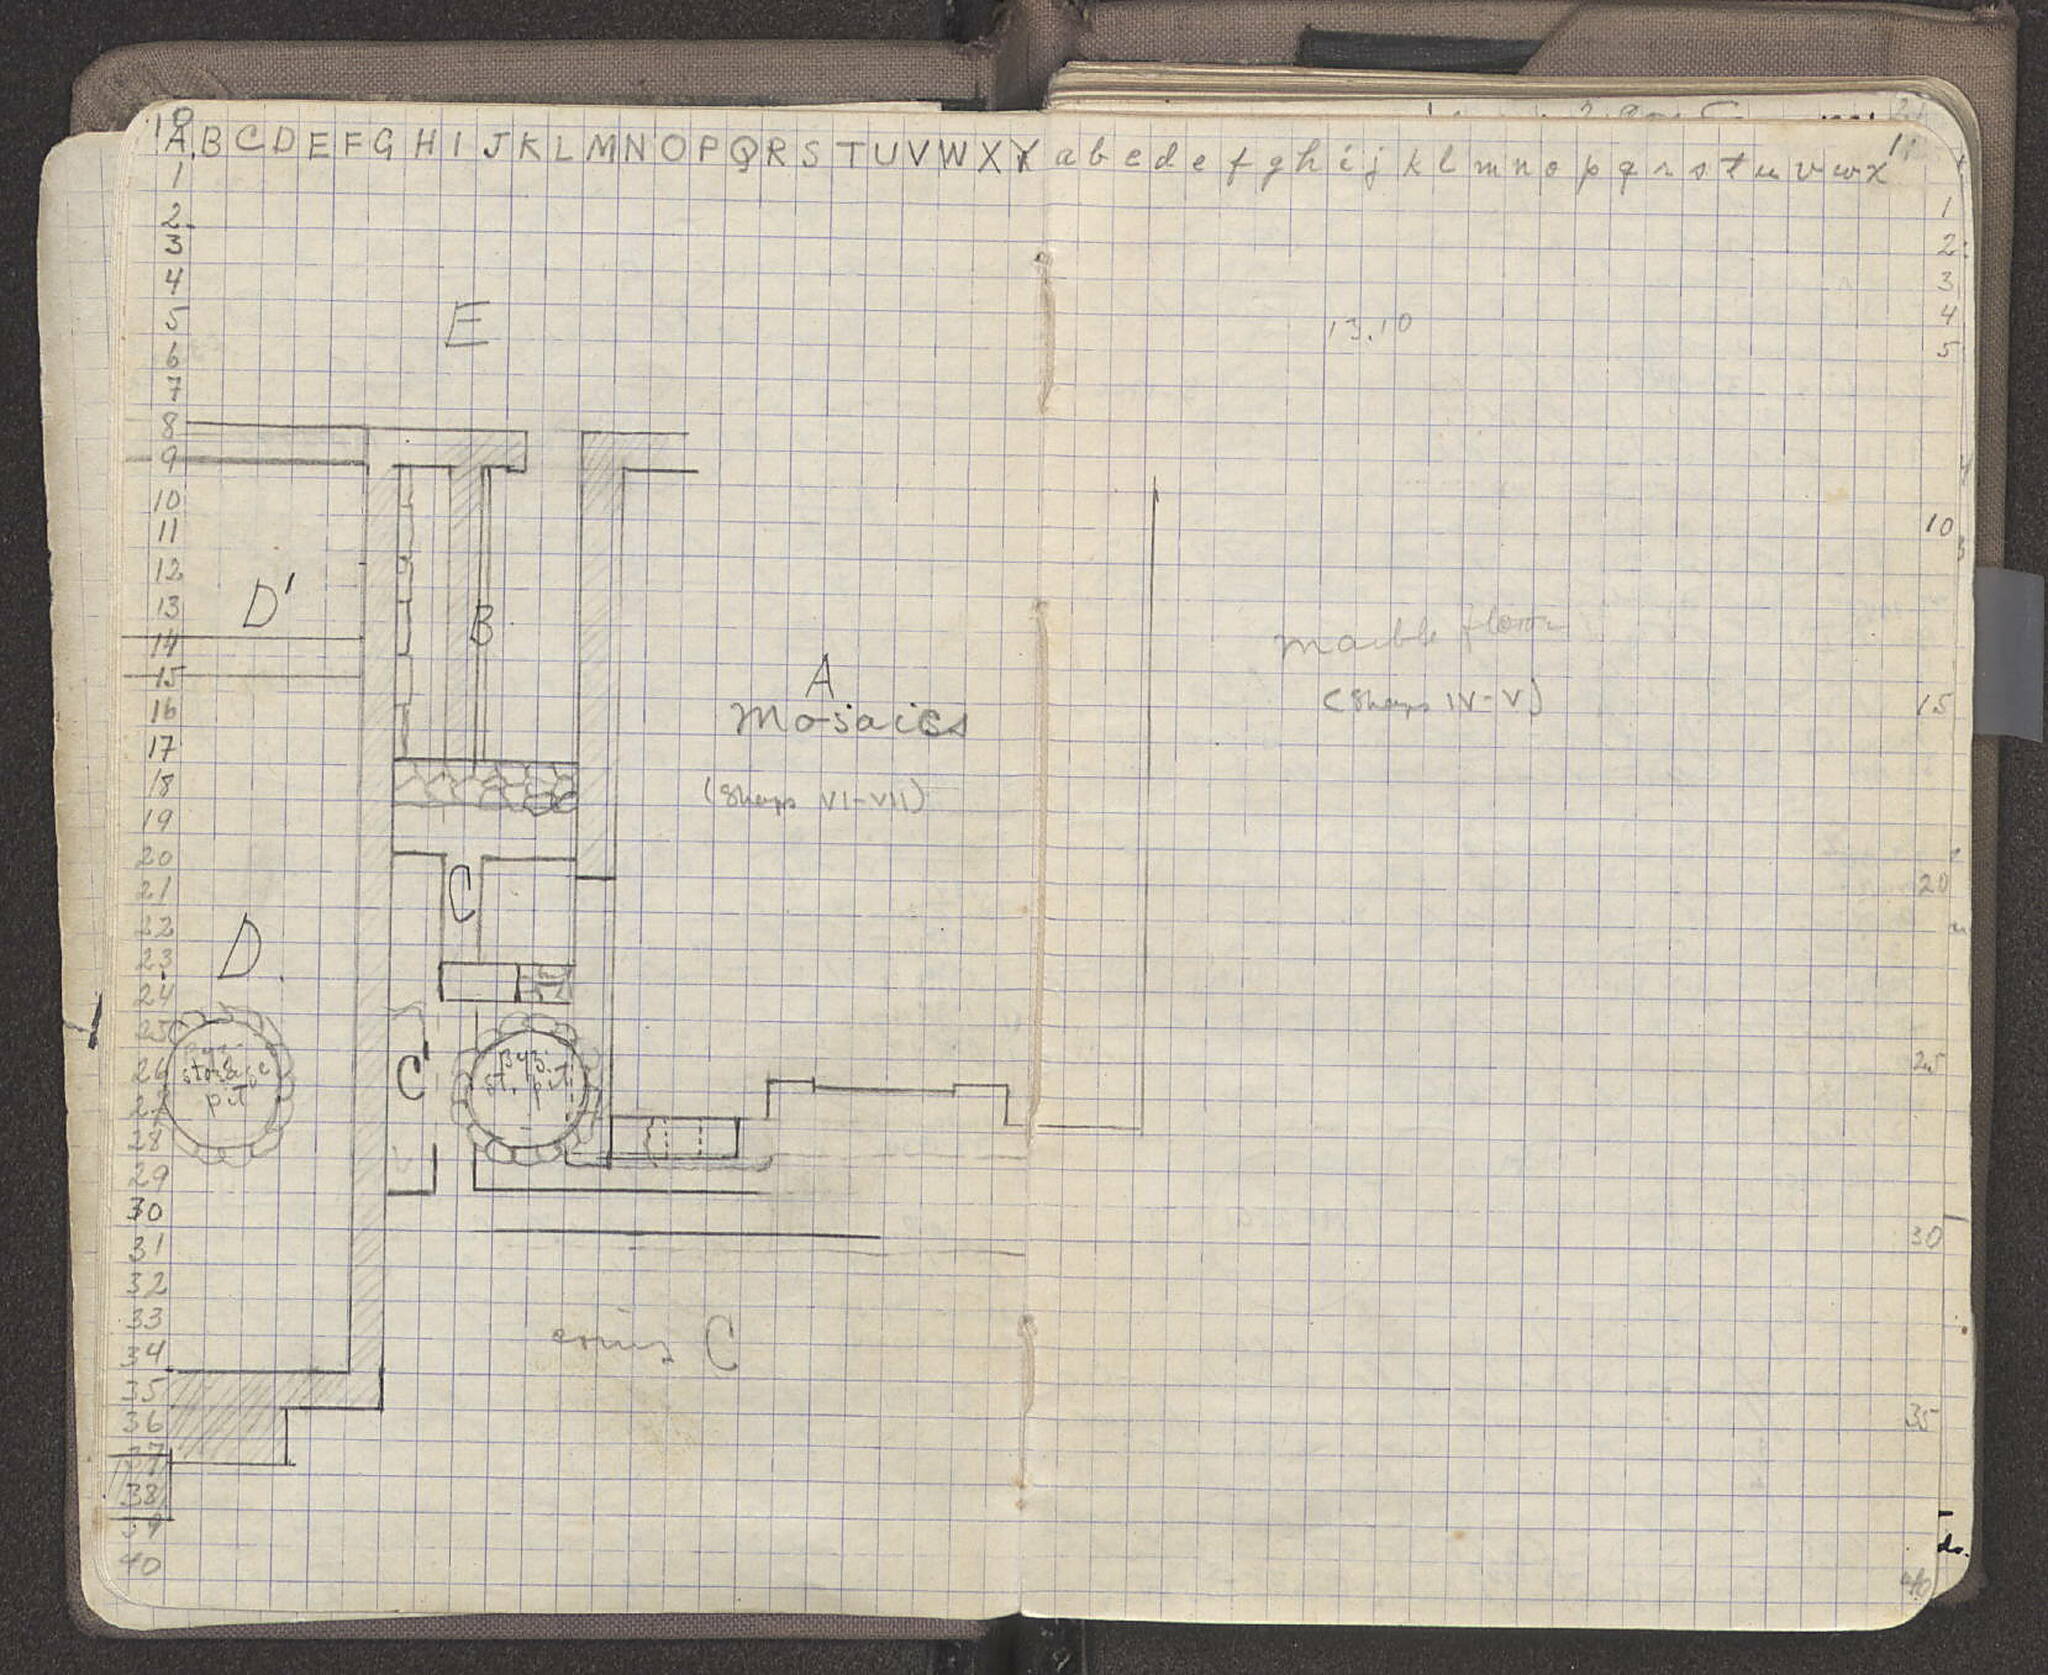 10
A B C D E F G H I J K L M N O P Q R S T U V W X Y a b c d e f g h i j k l m n o p q r s t u v w x
11
1
2
3
4
5
6
7
8
9
10
11
12
13
14
15
16
17
18
19
20
21
22
23
24
25
26
27
28
29
30
31
32
33
34
35
36
37
38
39
40
E
13.10
D'
B
A
Mosaics
(Shops VI-VII)
Marble floor
(Shops IV-V)
C
D
C'
Byz.
storage
pit
Byz.
st. pit
C
1
2
3
4
5
10
15
20
25
30
35
40